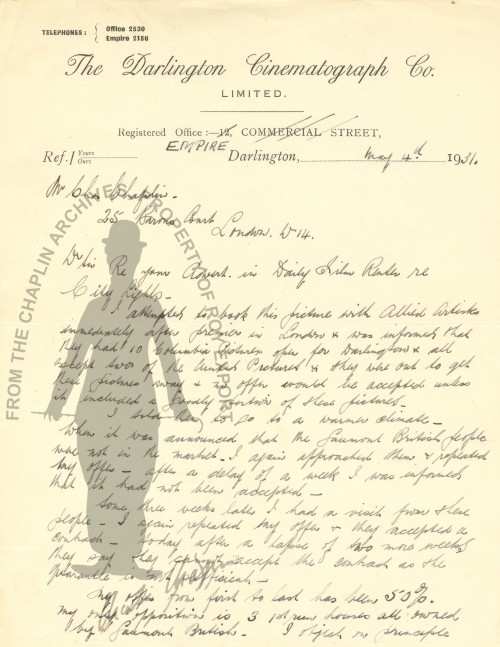 TELEPHONES : { Office 2630
Empire 2156
The Darlington Cinematograph Co.
LIMITED.
Registered Office :—12, COMMERCIAL STREET,
EMPIRE
Ref. { Yours
Ours
Darlington, May 4th 1931.
Mr Chas Chaplin.
25 Barons Court
London. W 14.
Dr Sir Re your Advert. in Daily Film Renter re
City Lights.
I attempted to book this picture with Allied Artistes
immediately after premier in London & was informed that
they had 10 Columbia Pictures open for Darlington & all
except two of the United Pictures & they were out to get
these pictures away & no offer would be accepted unless
it included a of these pictures.
I told them to go to a warmer climate—
When it was announced that the Gaumont British people
were not in the market—I again approached them & repeated
my offer — after a delay of a week I was informed
that it had not been accepted—
Some three weeks later I had a visit from these
people — I again repeated my offer & they accepted a
contract — Today after a lapse of two more weeks
they say they cannot accept the contract as the
guarantee is not sufficient—
My offer from first to last has been 50%
my only opposition is 3 1st run houses all owned
by Gaumont British. I object on principle
FROM THE CHAPLIN ARCHIVES PROPERTY OF ROY EXPORT